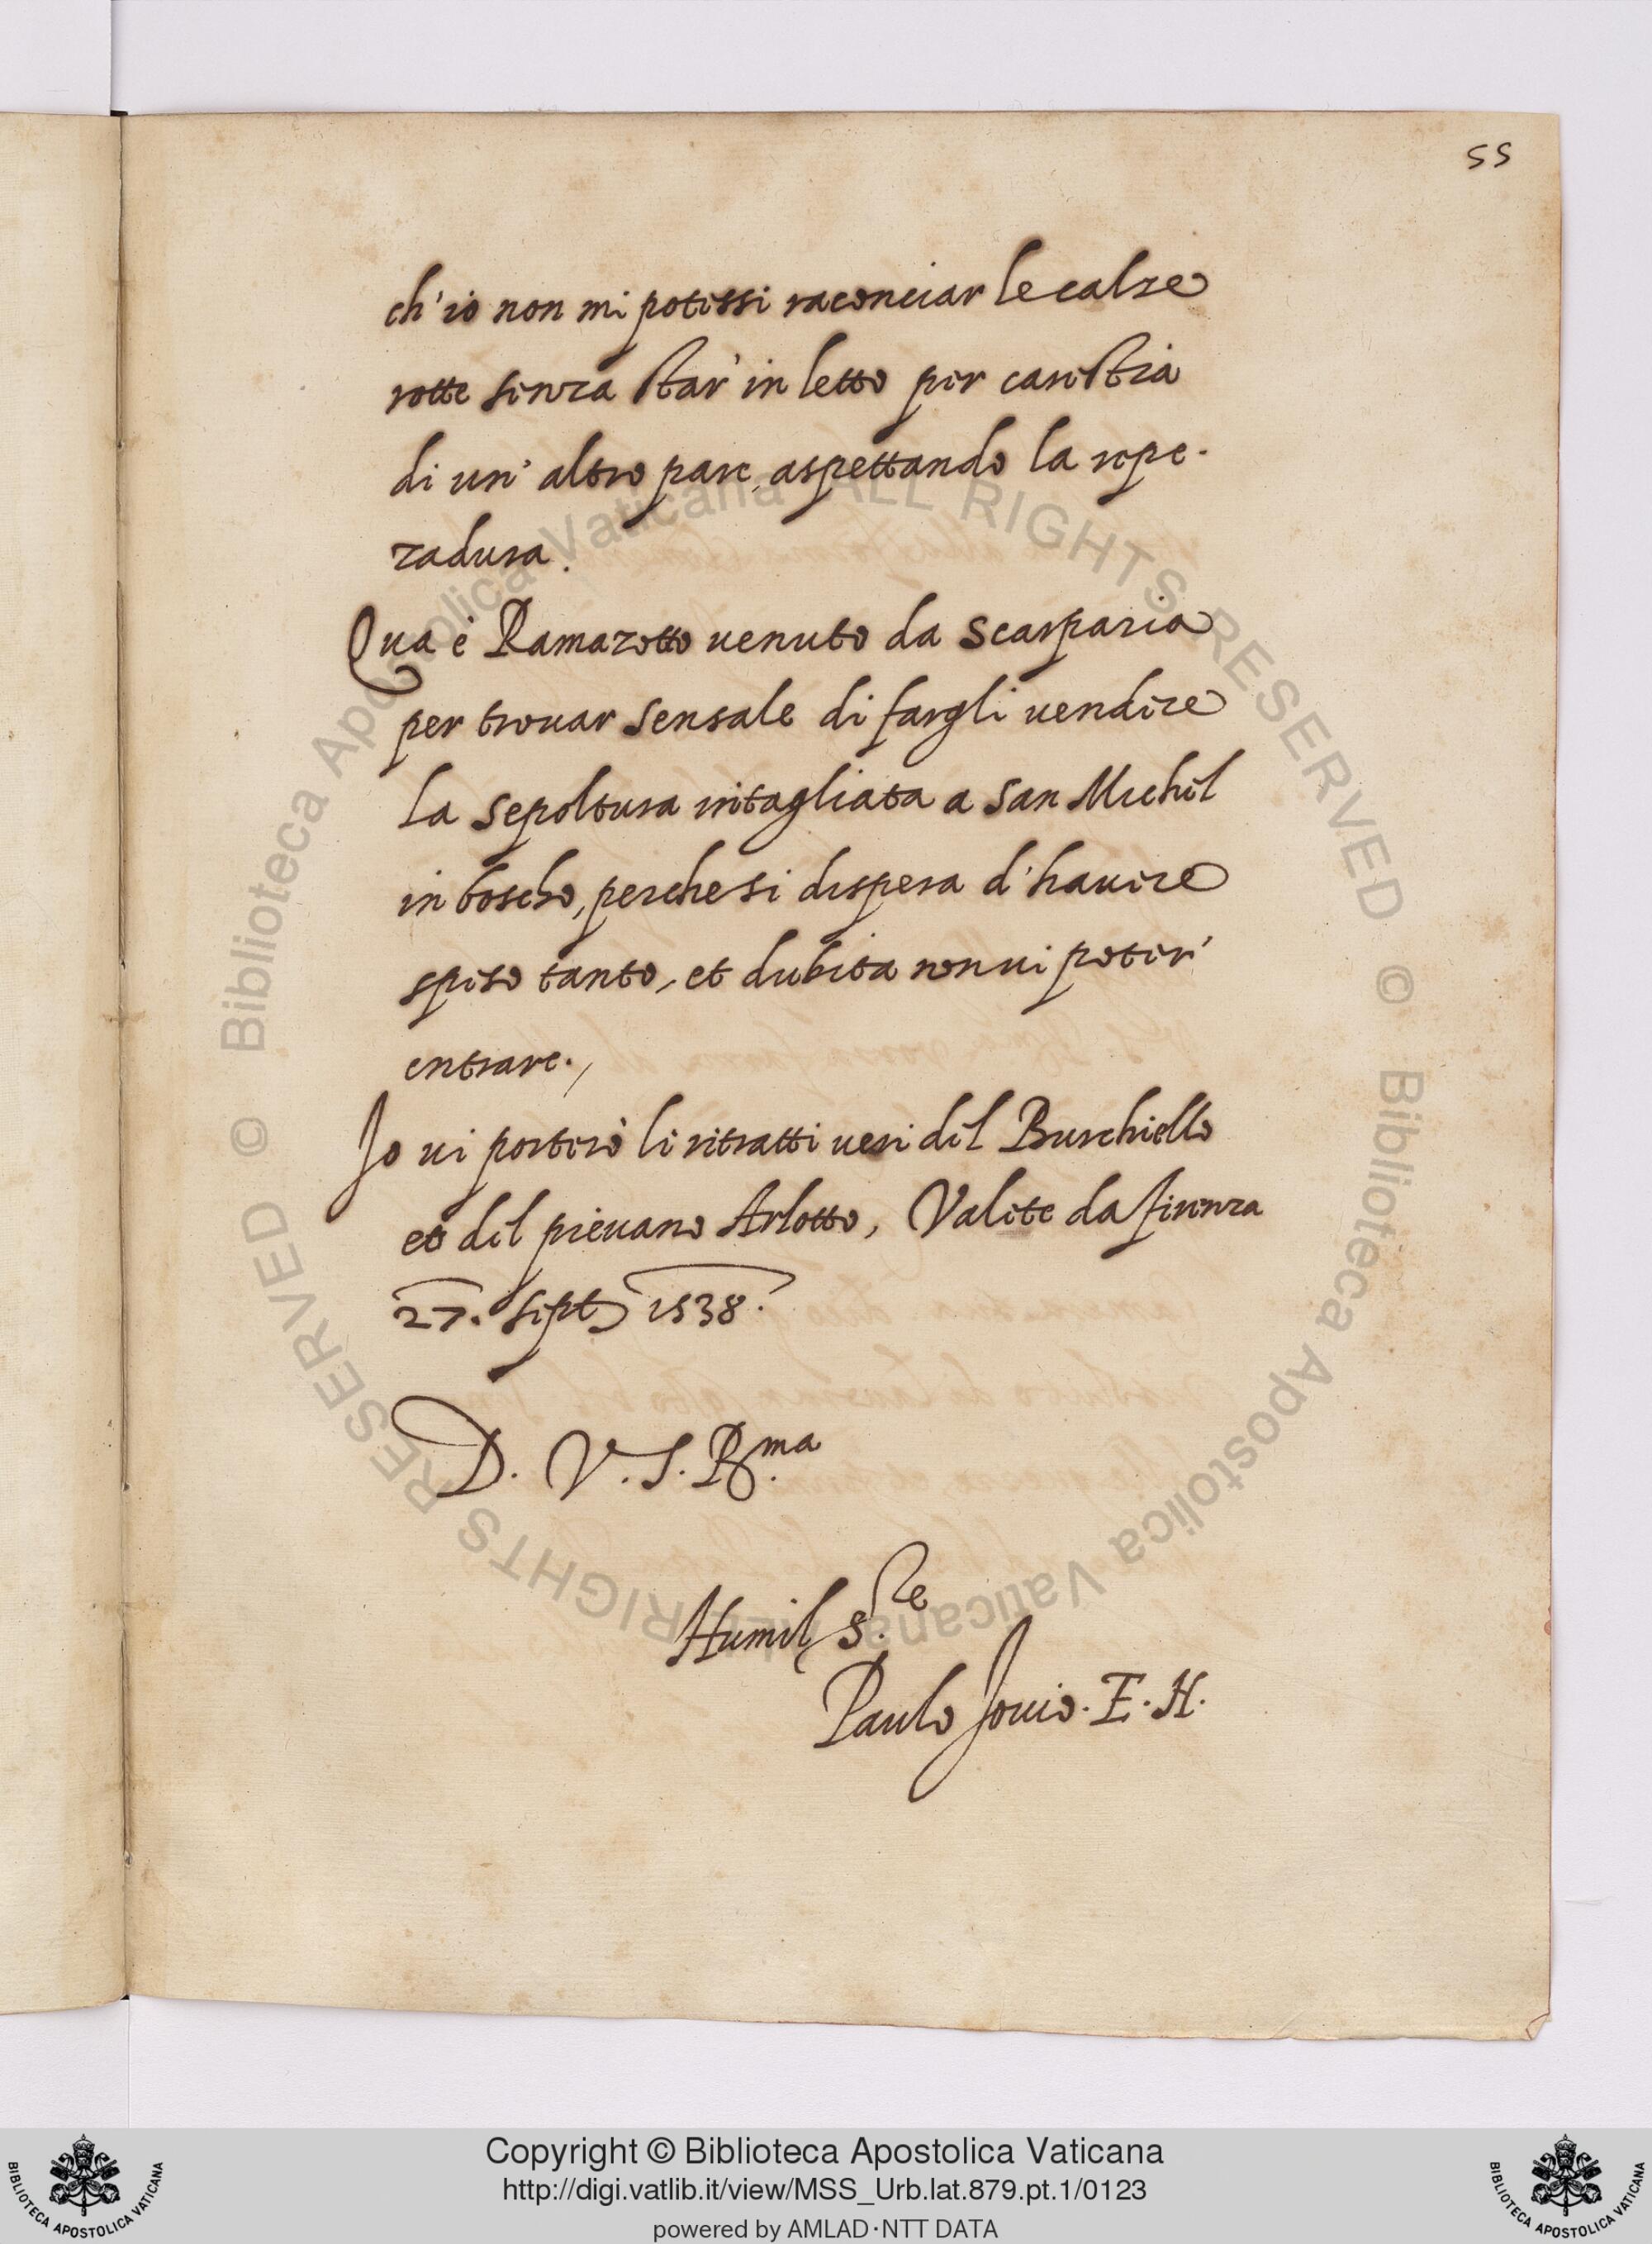 55
ch'io non mi potessi raconciar le calze
rotte senza star' in letto per carestia
di un' altro pare, aspettando la repe-
zadura.
Qua è Ramazotto uenuto da Scarparia
per trouar sensale di fargli uendere
la sepoltura intagliata a San Michel
in boscho, perche si dispera d'hauere
speso tanto, et dubita non ui poter'
entrare.
Io ui porterò li ritratti ueri del Burchiello
et del pieuano Arlotto, Valete da firenza
27. sept 1538.
D. V. S. R.ma
Humil s.re
Paulo Jouio. E. H.
© Biblioteca Apostolica Vaticana ALL RIGHTS RESERVED © Biblioteca Apostolica Vaticana ALL RIGHTS RESERVED
Copyright © Biblioteca Apostolica Vaticana
http://digi.vatlib.it/view/MSS_Urb.lat.879.pt.1/0123
powered by AMLAD·NTT DATA
BIBLIOTECA APOSTOLICA VATICANA
BIBLIOTECA APOSTOLICA VATICANA